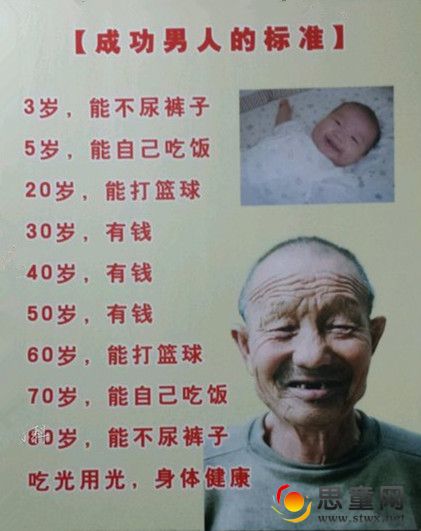 【成功男人的标准】
3岁，能不尿裤子
5岁，能自己吃饭
20岁，能打篮球
30岁，有钱
40岁，有钱
50岁，有钱
60岁，能打篮球
70岁，能自己吃饭
80岁，能不尿裤子
吃光用光，身体健康
思童网
www.stwx.net